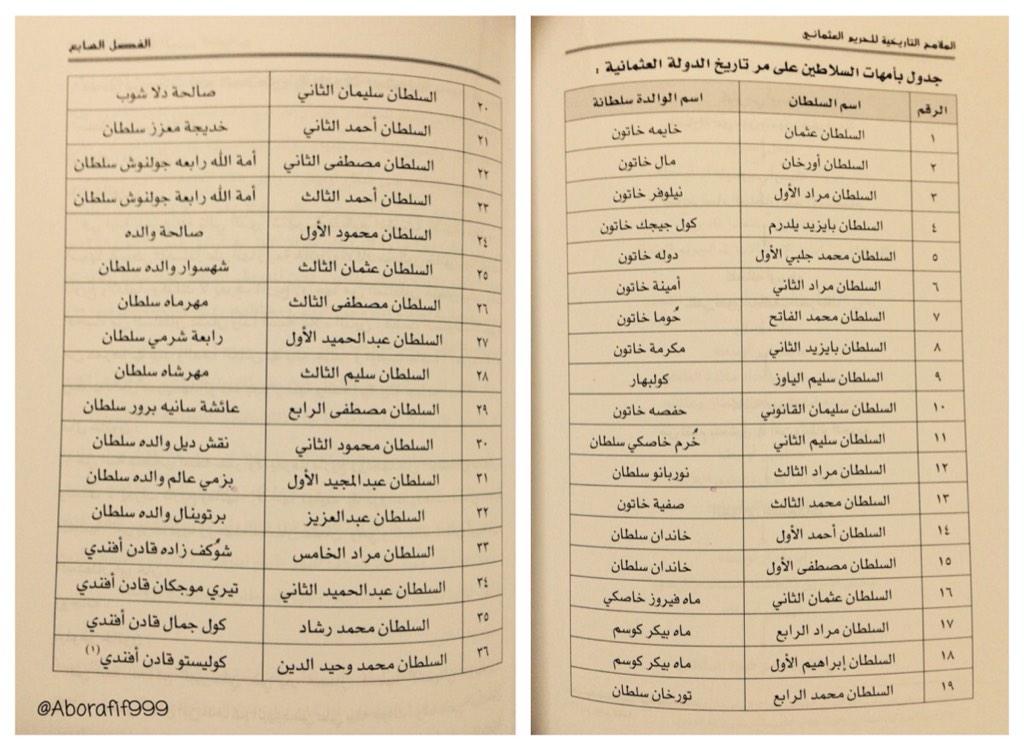 الملامح التاريخية للحريم العثماني
جدول بأمهات السلاطين على مر تاريخ الدولة العثمانية :
الرقم اسم السلطان اسم الوالدة سلطانة
١ السلطان عثمان خايمه خاتون
٢ السلطان أورخان مال خاتون
٣ السلطان مراد الأول نيلوفر خاتون
٤ السلطان بايزيد يلدرم كول جيجك خاتون
٥ السلطان محمد جلبي الأول دوله خاتون
٦ السلطان مراد الثاني أمينة خاتون
٧ السلطان محمد الفاتح خُوما خاتون
٨ السلطان بايزيد الثاني مكرمة خاتون
٩ السلطان سليم الياوز كولبهار
١٠ السلطان سليمان القانوني حفصه خاتون
١١ السلطان سليم الثاني خُرم خاصكي سلطان
١٢ السلطان مراد الثالث نوربانو سلطان
١٣ السلطان محمد الثالث صفية خاتون
١٤ السلطان أحمد الأول خاندان سلطان
١٥ السلطان مصطفى الأول خاندان سلطان
١٦ السلطان عثمان الثاني ماه فيروز خاصكي
١٧ السلطان مراد الرابع ماه بيكر كوسم
١٨ السلطان إبراهيم الأول ماه بيكر كوسم
١٩ السلطان محمد الرابع تورخان سلطان
الفصل السابع
٢٠ السلطان سليمان الثاني صالحة دلا شوب
٢١ السلطان أحمد الثاني خديجة معزز سلطان
٢٢ السلطان مصطفى الثاني أمة الله رابعه جولنوش سلطان
٢٣ السلطان أحمد الثالث أمة الله رابعة جولنوش سلطان
٢٤ السلطان محمود الأول صالحة والده
٢٥ السلطان عثمان الثالث شهسوار والده سلطان
٢٦ السلطان مصطفى الثالث مهرماه سلطان
٢٧ السلطان عبدالحميد الأول رابعة شرمي سلطان
٢٨ السلطان سليم الثالث مهرشاه سلطان
٢٩ السلطان مصطفى الرابع عائشة سانيه برور سلطان
٣٠ السلطان محمود الثاني نقش ديل والده سلطان
٣١ السلطان عبدالمجيد الأول بزمي عالم والده سلطان
٣٢ السلطان عبدالعزيز برتوينال والده سلطان
٣٣ السلطان مراد الخامس شوُكف زاده قادن أفندي
٣٤ السلطان عبدالحميد الثاني تيري موجكان قادن أفندي
٣٥ السلطان محمد رشاد كول جمال قادن أفندي
٣٦ السلطان محمد وحيد الدين كوليستو قادن أفندي(١)
@Aborafif999